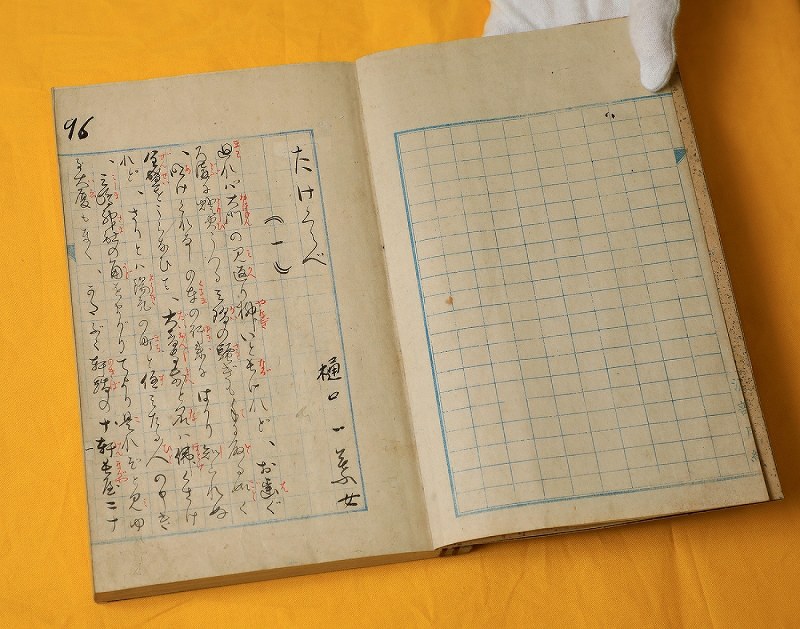 96
たけくらべ 樋口一葉女
(一)
廻れば大門の見返り柳いと長けれど、お歯ぐ
ろ溝に燈火うつる三階の騒ぎも手に取る如く
、明けくれなしの車の行来にはかり知られぬ
全盛をうらなひて、大音寺前と名は佛くさけ
れど、さりとは陽気の町と住みたる人の申き
、三嶋神社の角をまがりてより是れぞと見ゆ
る大厦もなく、かたぶく軒端の十軒長屋二十